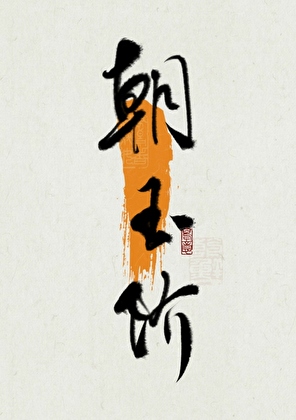 朝玉阶